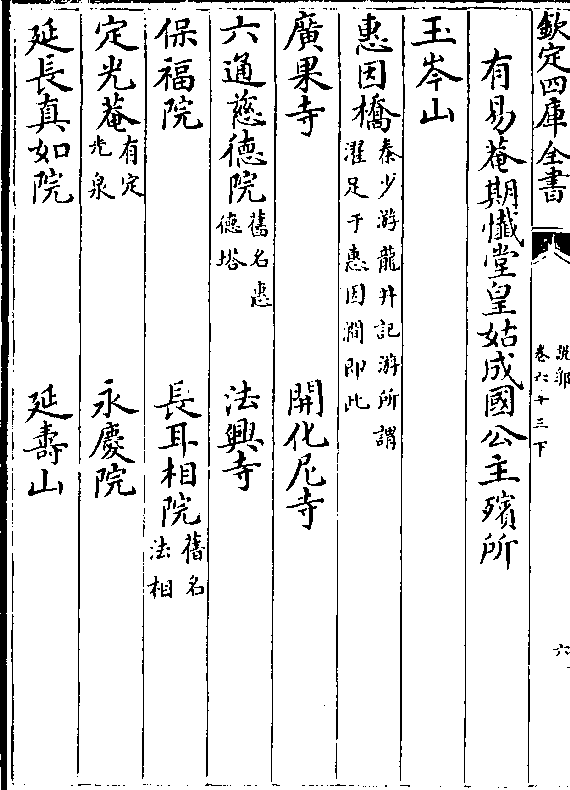 欽定四庫全書
說郛
卷六十三下
六
有易菴期懺堂皇姑成國公主殯所
玉岑山
惠因橋秦少游龍井記游所謂
濯足于惠因澗即此
廣果寺 開化尼寺
六通慈德院舊名惠
德塔 法興寺
保福院 長耳相院舊名
法相
定光菴有定
光泉 永慶院
延長真如院 延壽山